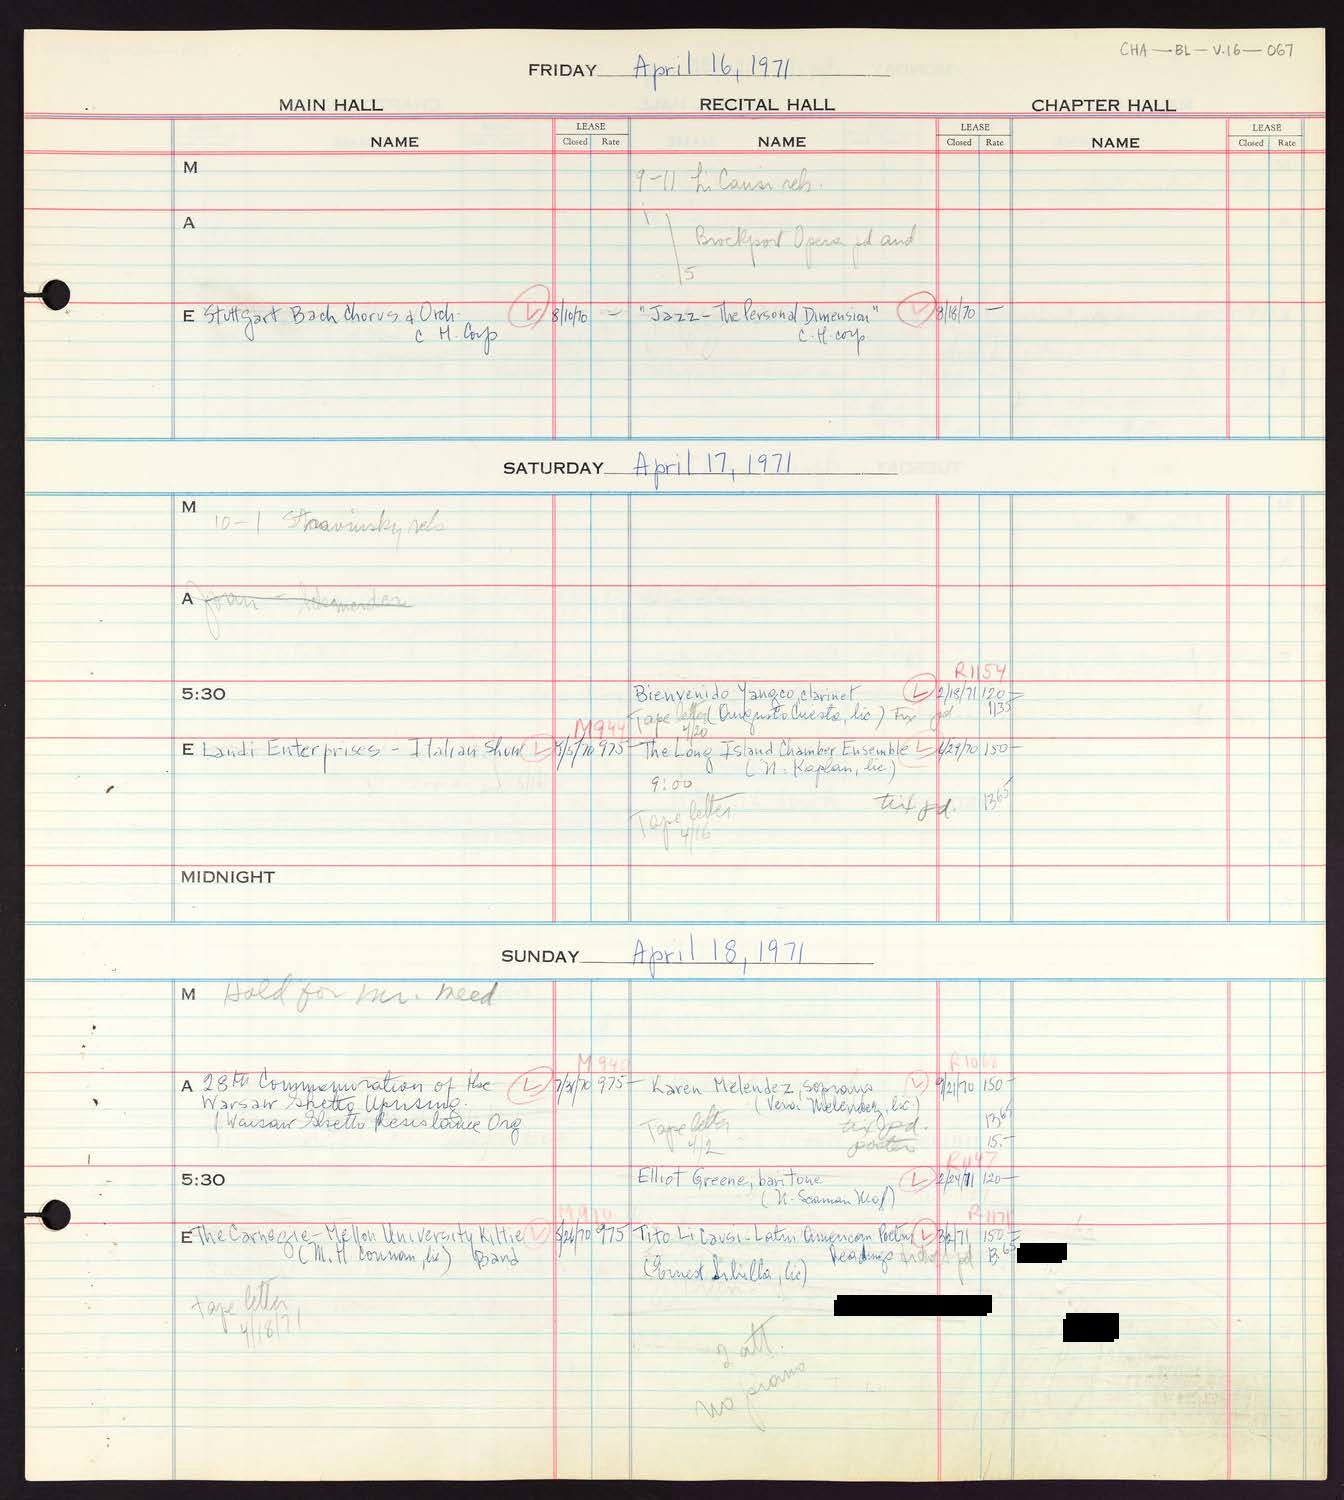 CHA — BL — V.16 — 067
FRIDAY April 16, 1971
MAIN HALL RECITAL HALL CHAPTER HALL
NAME LEASE Closed Rate NAME LEASE Closed Rate NAME LEASE Closed Rate
M 9-11 Li Causi reh.
A 1
Brockport Opera pd and
5
E Stuttgart Bach Chorus & Orch. L 8/10/70 — "Jazz - The Personal Dimension" L 8/18/70 —
C H. Corp C. H. corp
SATURDAY April 17, 1971
M
10-1 Stravinsky reh
A Joan -
R1154
5:30 Bienvenido Yangco, clarinet L 2/18/71 120—
Tape letter (Augusto Cuesta, lic) Tix pd 1135
4/20
M944
E Landi Enterprises - Italian Show L 975— The Long Island Chamber Ensemble L 6/29/70 150—
(N. Kaplan, lic)
9:00
Tape letter tix pd. 1365
4/16
MIDNIGHT
SUNDAY April 18, 1971
M Hold for Mr. Meed
M940
A 28th Commemoration of the L 7/31/70 975— Karen Melendez, soprano L 9/21/70 150—
Warsaw Ghetto Uprising. (Vera Melendez, lic)
(Warsaw Ghetto Resistance Org Tape letter tix pd. 1365
4/2 15.—
R1147
5:30 Elliot Greene, baritone L 2/24/71 120—
M910
R1171
E The Carnegie-Mellon University Kiltie L 5/26/70 975 Tito Li Causi - Latin American Poetry L 3/2/71 150—
(M. H lic) Band Readings pd
(Ernest Sibilla, lic)
tape letter
4/18/71
2 att.
no piano